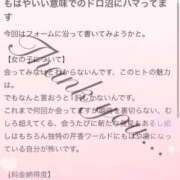 もはやいい意味でのドロ沼にハマってます
今回はフォームに沿って書いてみようかと。
【女の子について】
会ってみないとわからないんです、このヒトの魅力は。
でもなんと言おうと
これまで何回か会ってますが
を裏切らない、むしろ超えてくる、会うたびに新たな
し絵しはもちろん独特の芹香ワールドにもはや虜になっている自分が怖いです。
【料金納得度】
Thank you...